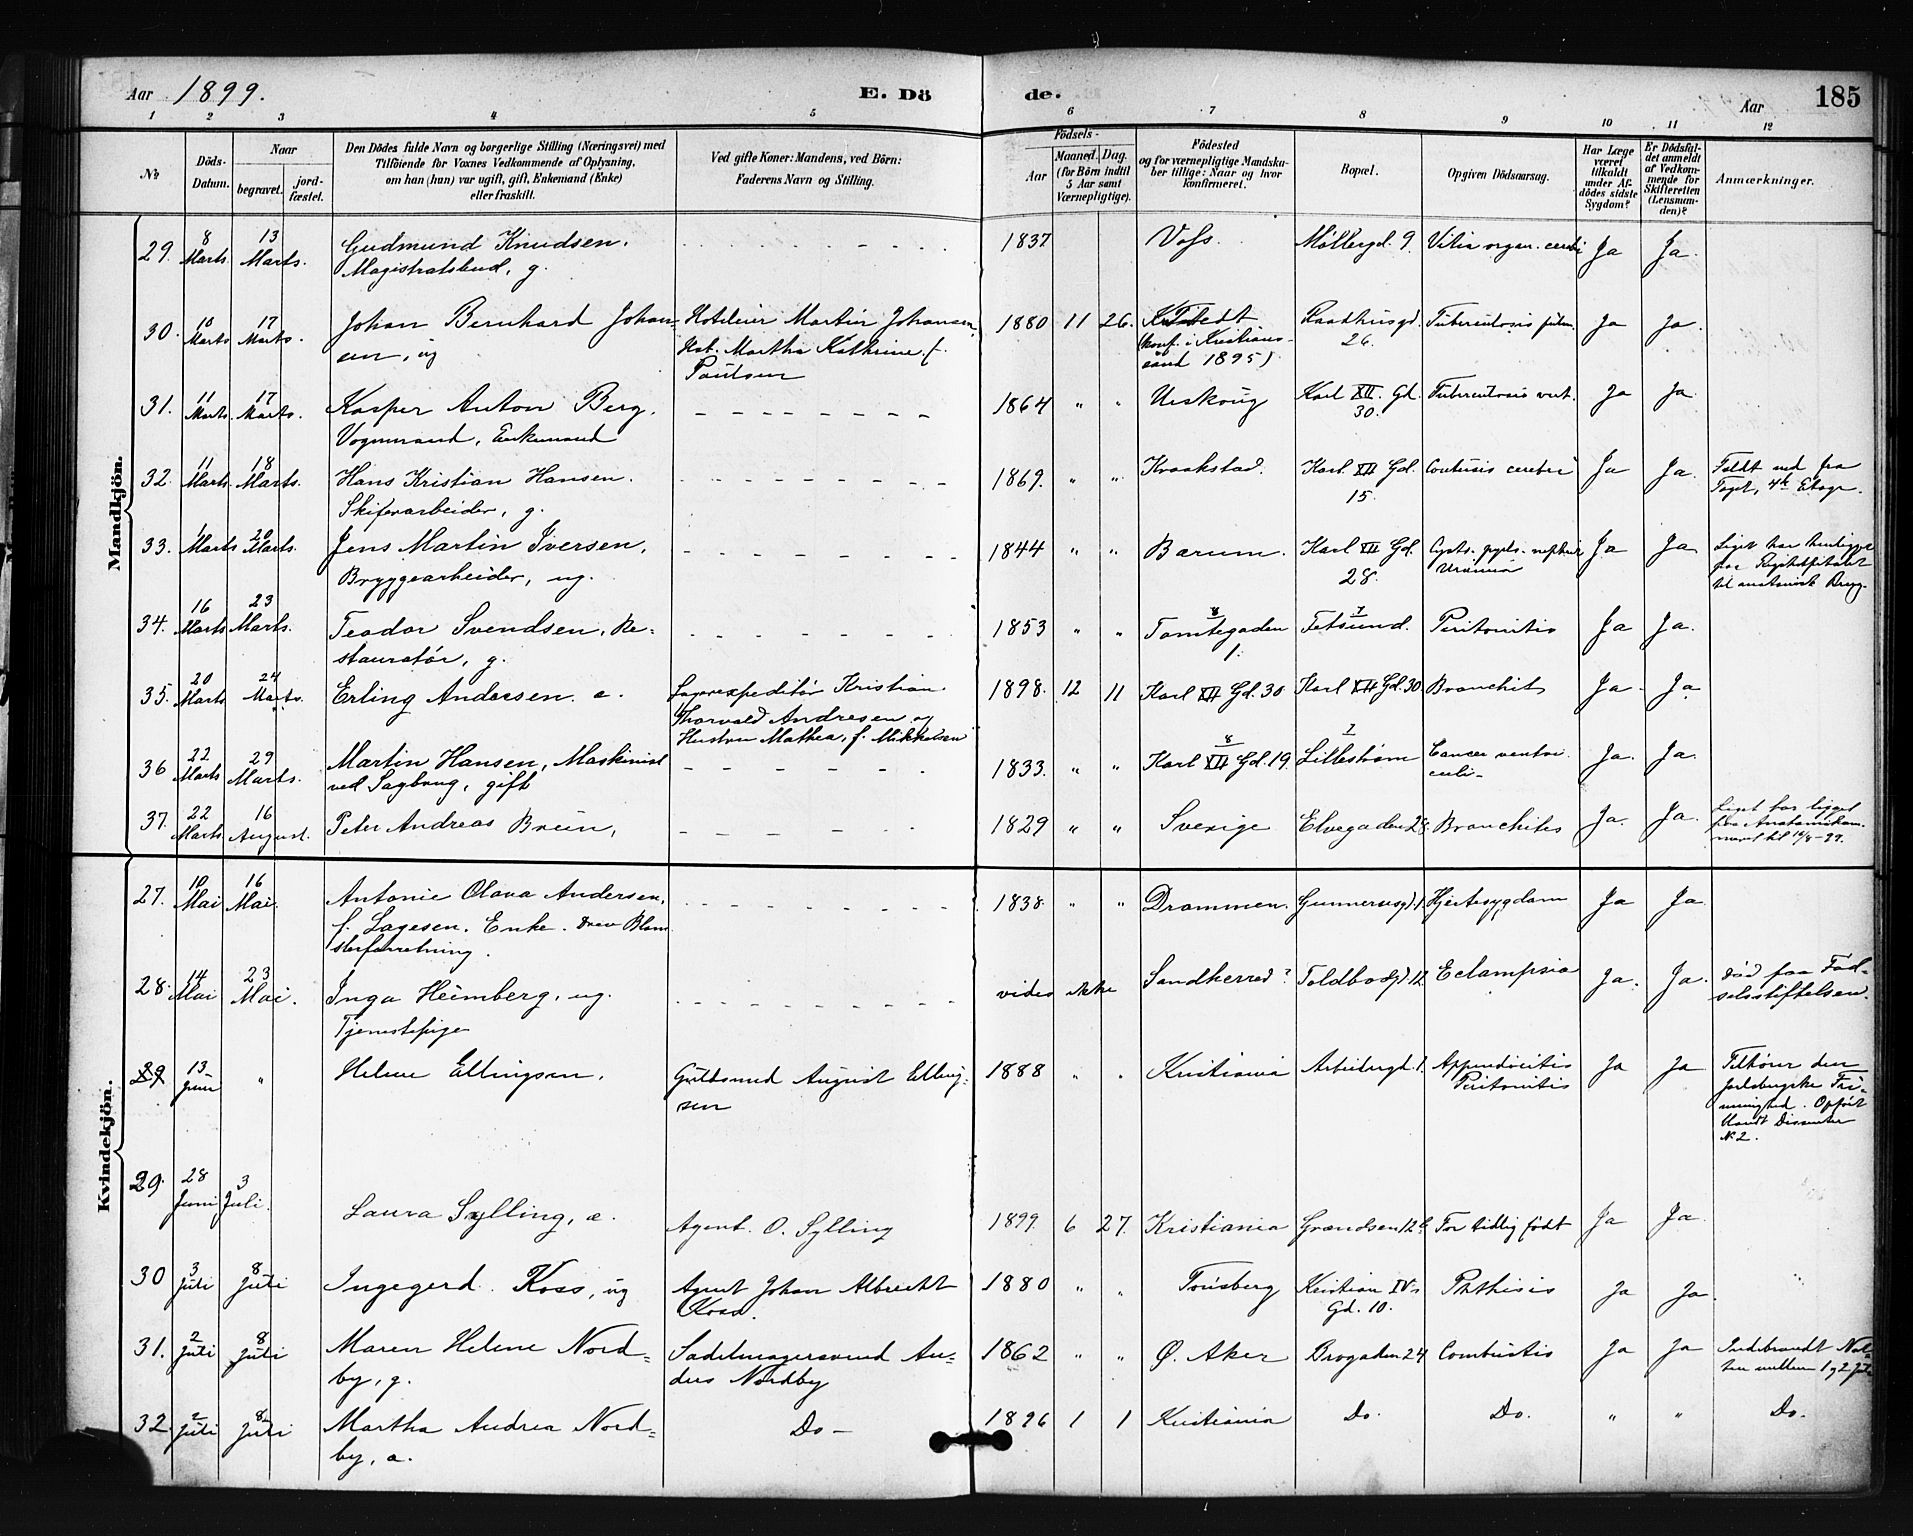 Aar 1899. E. Dö de. Aar 185
1 2 3 4 5 6 7 8 9 10 11 12
No
Döds-Datum.
Naar
begravet.
jord-fæstet.
Den Dödes fulde Navn og borgerlige Stilling (Næringsvei) med
Tilföiende for Voxnes Vedkommende af Oplysning,
om han (hun) var ugift, gift, Enkemand (Enke)
eller fraskilt.
Ved gifte Koner: Mandens, ved Börn:
Faderens Navn og Stilling.
Födsels-
Aar
Maaned. Dag.
(for Börn indtil
5 Aar samt
Værnepligtige).
Födested
og for værnepligtige Mandska-
ber tillige: Naar og hvor
konfirmeret.
Bopæl.
Opgiven Dödsaarsag.
Har Læge
været
tilkaldt
under Af-
dödes sidste
Sygdom?
Er Dödsfal-
det anmeldt
af Vedkom-
mende for
Skifteretten
(Lensman-
den)?
Anmærkninger.
Mandkjön.
29. 8 Marts. 13 Marts. Gudmund Knudsen. 1837 Voss. Møllergd. 9. Vitia organ. cerebri Ja Ja.
Magistratsbud, g.
30. 10 Marts 17 Marts. Johan Bernhard Johan- Hoteleier Martin Johansen, 1880 11 26. Tvedt Raadhusgd. 26. Tuberculosis pulm. Ja Ja.
sen, ug Martha Kathrine f. (konf. i Kristians-
Paulsen sand 1895)
31. 11 Marts. 17 Marts. Kasper Anton Berg. 1864 " " Urskoug Karl XII. Gd. 30. Tuberculosis Ja Ja
Vognmand, Enkemand
32. 11 Marts. 18 Marts. Hans Kristian Hansen. 1869. " " Kraakstad. Karl XII Gd. 15. Contusio cerebri Ja Ja. Faldt ned fra
Skiferarbeider, g. Taget, 4de Etage.
33. Marts 20 Marts. Jens Martin Iversen, 1844 " " Barum. Karl XII Gd. 28. Uræmia Ja Ja Liget har henligget
Bryggearbeider, ug. paa Rigshospitalet
til anatomisk Brug.
34. 16 Marts 23 Marts. Teodor Svendsen, Re- 1853 " " 8 Tomtegaden 1. 7 Fetsund. Peritonitis Ja Ja.
stauratør, g.
35. 20 Marts 24 Marts. Erling Andersen. e. Lagerexpeditør Kristian 1898. 12 11 Karl XII Gd. 30 Karl XII Gd. 30 Bronchit Ja. Ja
Thorvald Andresen og
Hustru Mathea, f. Mikkelsen
36 22 Marts 29 Marts. Martin Hansen, Maskinist 1833. " " 8 Karl XII Gd. 19. 7 Lillestrøm Cancer ventri- Ja. Ja.
ved Sagbrug, gift culi-
37. 22 Marts 16 August. Peter Andreas Breün, 1829 " " Sverige Elvegaden 28. Bronchites Ja. Ja. Liget har ligget
paa Anatomikam-
meret til 16/8-99.
Kvindekjön.
27. 10 Mai 16 Mai. Antonie Olava Andersen, 1838. " " Drammen. Gunnerusgd. 1. Hjertesygdom Ja Ja.
f. Lagesen. Enke. Drev Blom-
sterforretning.
28. 14 Mai 23 Mai. Inga Heimberg, ug. vides ikke Sandherred? Toldbodgd 12. Eclampsia Ja. Ja. Død paa Fød-
Tjenestepige selsstiftelsen.
29 13 Juni " Helene Ellingsen. Guldsmed August Elling- 1888 " " Kristiania Arbeidergd. 1. Appendicitis Ja Ja Tilhører den
sen Peritonitis jarlsbergske Fri-
menighed. Opført
blandt Dissenter
No 2.
29. 28 Juni 3 Juli. Laura Sylling, e. Agent O. Sylling 1899. 6 27. Kristiania Grændsen 12 b. For tidlig født Ja Ja.
30 3 Juli 8 Juli Ingegerd Koss, ug Agent Johan Albrecht 1880 " " Tønsberg Kristian IV's Gd. 10. Phthisis Ja Ja.
Koss.
31. 2 Juli 8 Juli Maren Helene Nord- Sadelmagersvend An- 1862 " " Ø. Aker Brogaden 24 Combustio Ja Ja Indebrændt Nat-
by, g. ders Nordby ten mellem 1 og 2 Juli
32. 2 Juli 8 Juli Martha Andrea Nord- Do- 1896 1 1 Kristiania Do. Do. " " Do.
by, a.